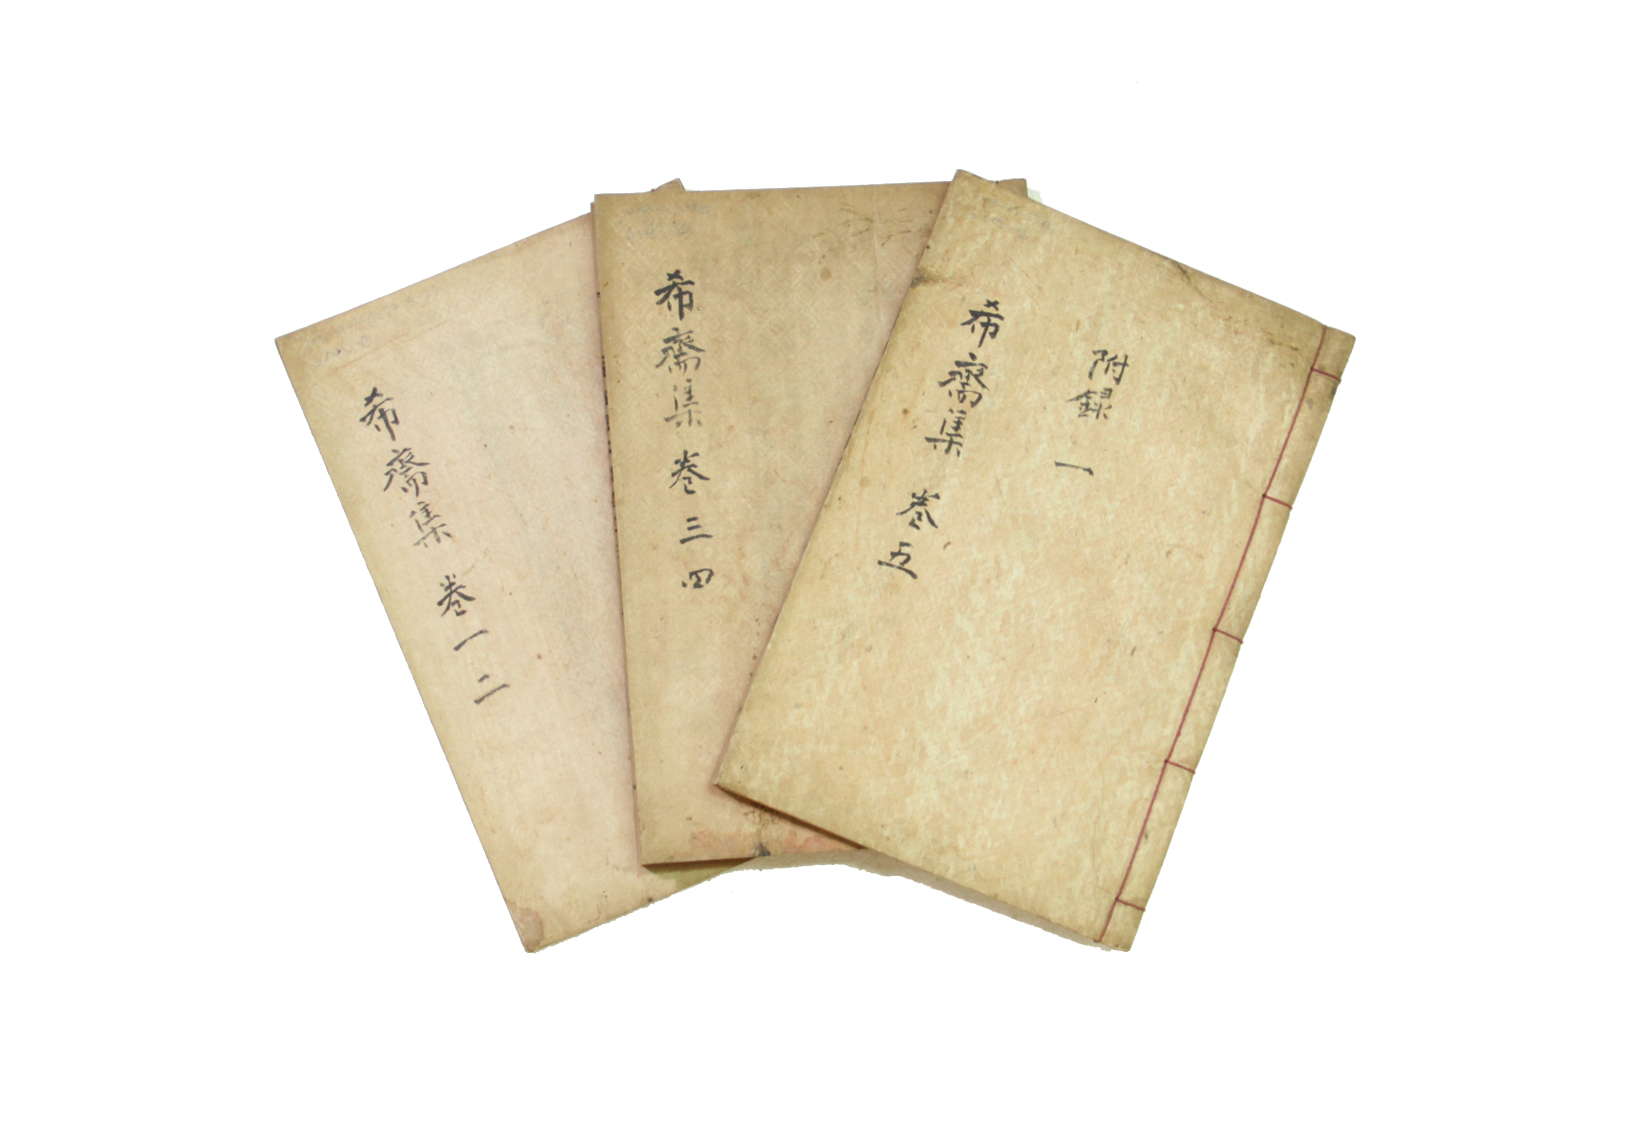 希齋集 卷一 二
希齋集 卷三 四
希齋集 卷五
附録 一